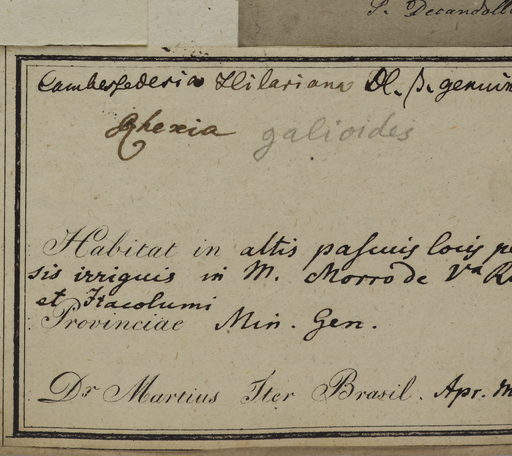 P. Decandoll
Cambessedesia Hilariana DC. β. genuin
Rhexia galioides
Habitat in altis pascuis locis
sis irriguis in M. Morro de Va
et Itacolumi
Provinciae Min. Gen.
Dr Martius Iter Brasil. Apr. M